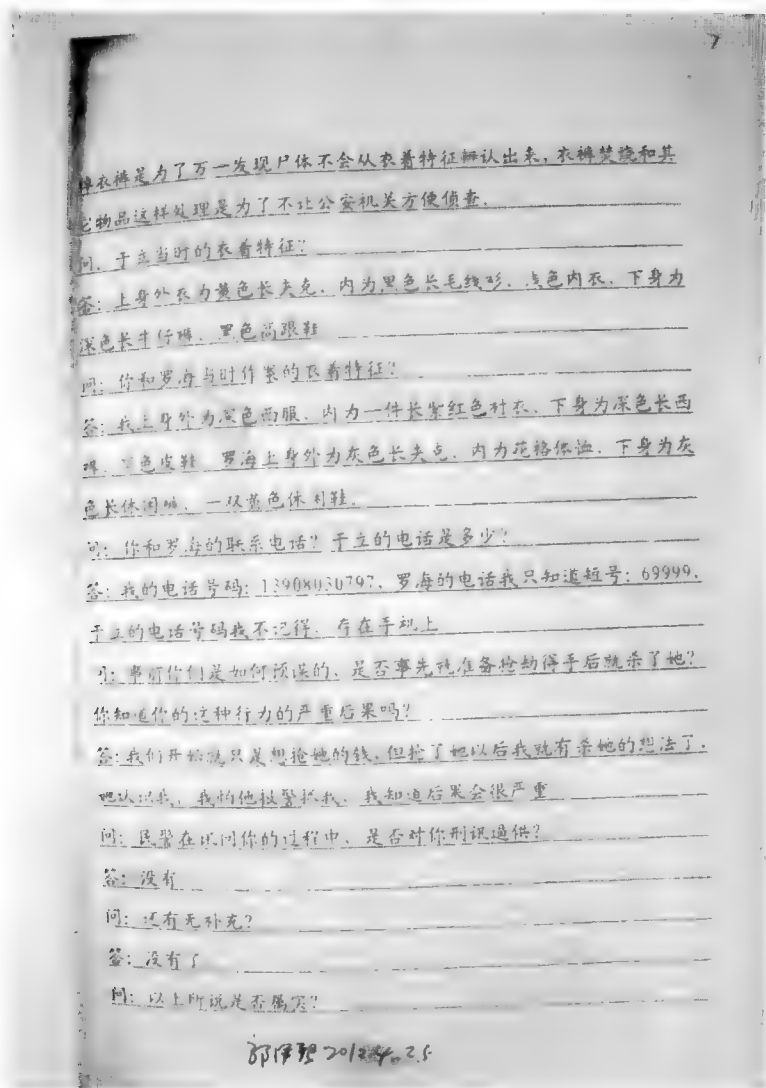 7
掉衣裤是为了万一发现尸体不会从衣着特征辨认出来,衣裤焚烧和其
它物品这样处理是为了不让公安机关方便侦查.
问:于立当时的衣着特征?
答:上身外衣为黄色长夹克、内为黑色长毛线衫、色内衣、下身为
深色长牛仔裤、黑色高跟鞋
问:你和罗海当时作案的衣着特征?
答:我上身外为深色西服、内为一件长紫红色衬衣、下身为深色长西
裤、色皮鞋 罗海上身外为灰色长夹克、内为花格体恤、下身为灰
色长休闲裤、一双黄色休闲鞋.
问:你和罗海的联系电话?于立的电话是多少?
答:我的电话号码:、罗海的电话我只知道短号:69999.
于立的电话号码我不记得、存在手机上
问:事前你们是如何预谋的、是否事先就准备抢劫得手后就杀了她?
你知道你的这种行为的严重后果吗?
答:我们开始就只是想抢她的钱,但抢了她以后我就有杀她的想法了.
她认识我、我怕他报警抓我、我知道后果会很严重
问:民警在讯问你的过程中、是否对你刑讯逼供?
答:没有
问:还有无补充?
答:没有了
问:以上所说是否属实?